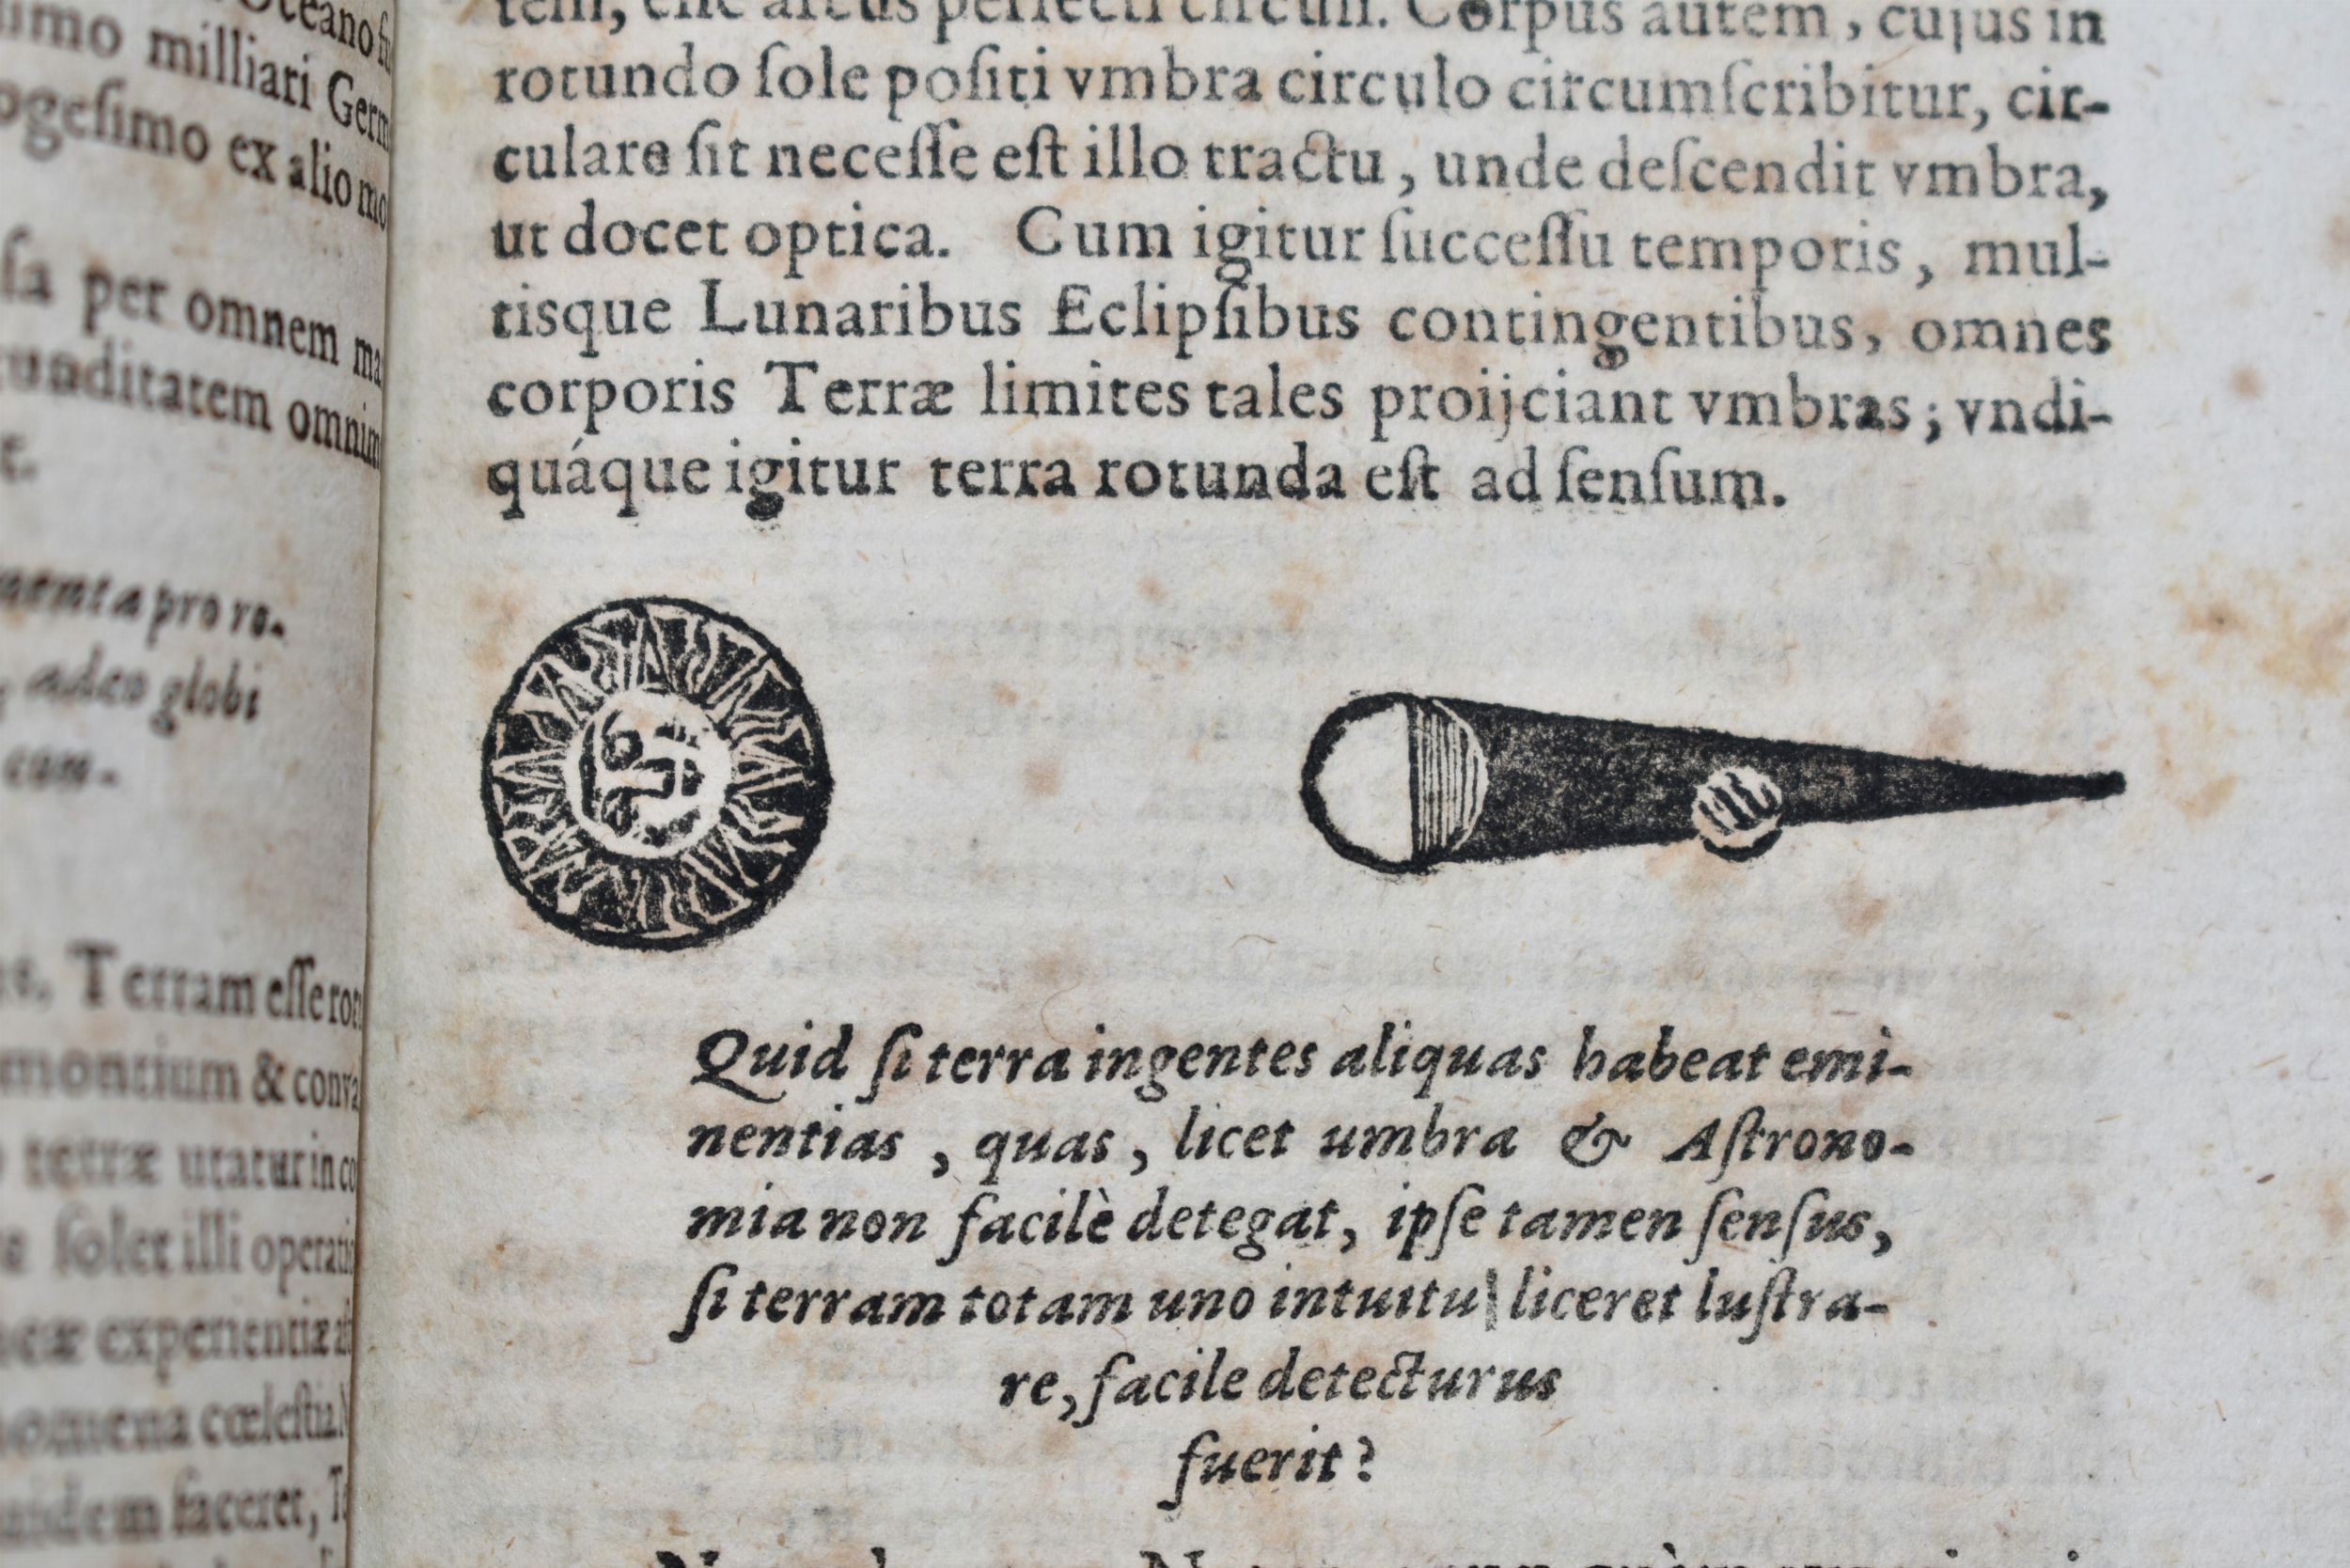 Oceano
imo milliari Germ
ogeſimo ex alio mo
ſa per omnem ma
unditatem omnim
t.
menta pro ro-
adeo globi
con-
Terram eſſe ro
montium & conva
terræ utatur in co
ſolet illi operati
experientiæ
cœleſtia
faceret,
Corpus autem, cujus in
rotundo ſole poſiti vmbra circulo circumſcribitur, cir-
culare ſit neceſſe eſt illo tractu, unde deſcendit vmbra,
ut docet optica. Cum igitur ſucceſſu temporis, mul-
tisque Lunaribus Eclipſibus contingentibus, omnes
corporis Terræ limites tales proijciant vmbras; vndi-
quáque igitur terra rotunda eſt ad ſenſum.
Quid ſi terra ingentes aliquas habeat emi-
nentias, quas, licet umbra & Aſtrono-
mia non facilè detegat, ipſe tamen ſenſus,
ſi terram totam uno intuitu| liceret luſtra-
re, facile detecturus
fuerit?